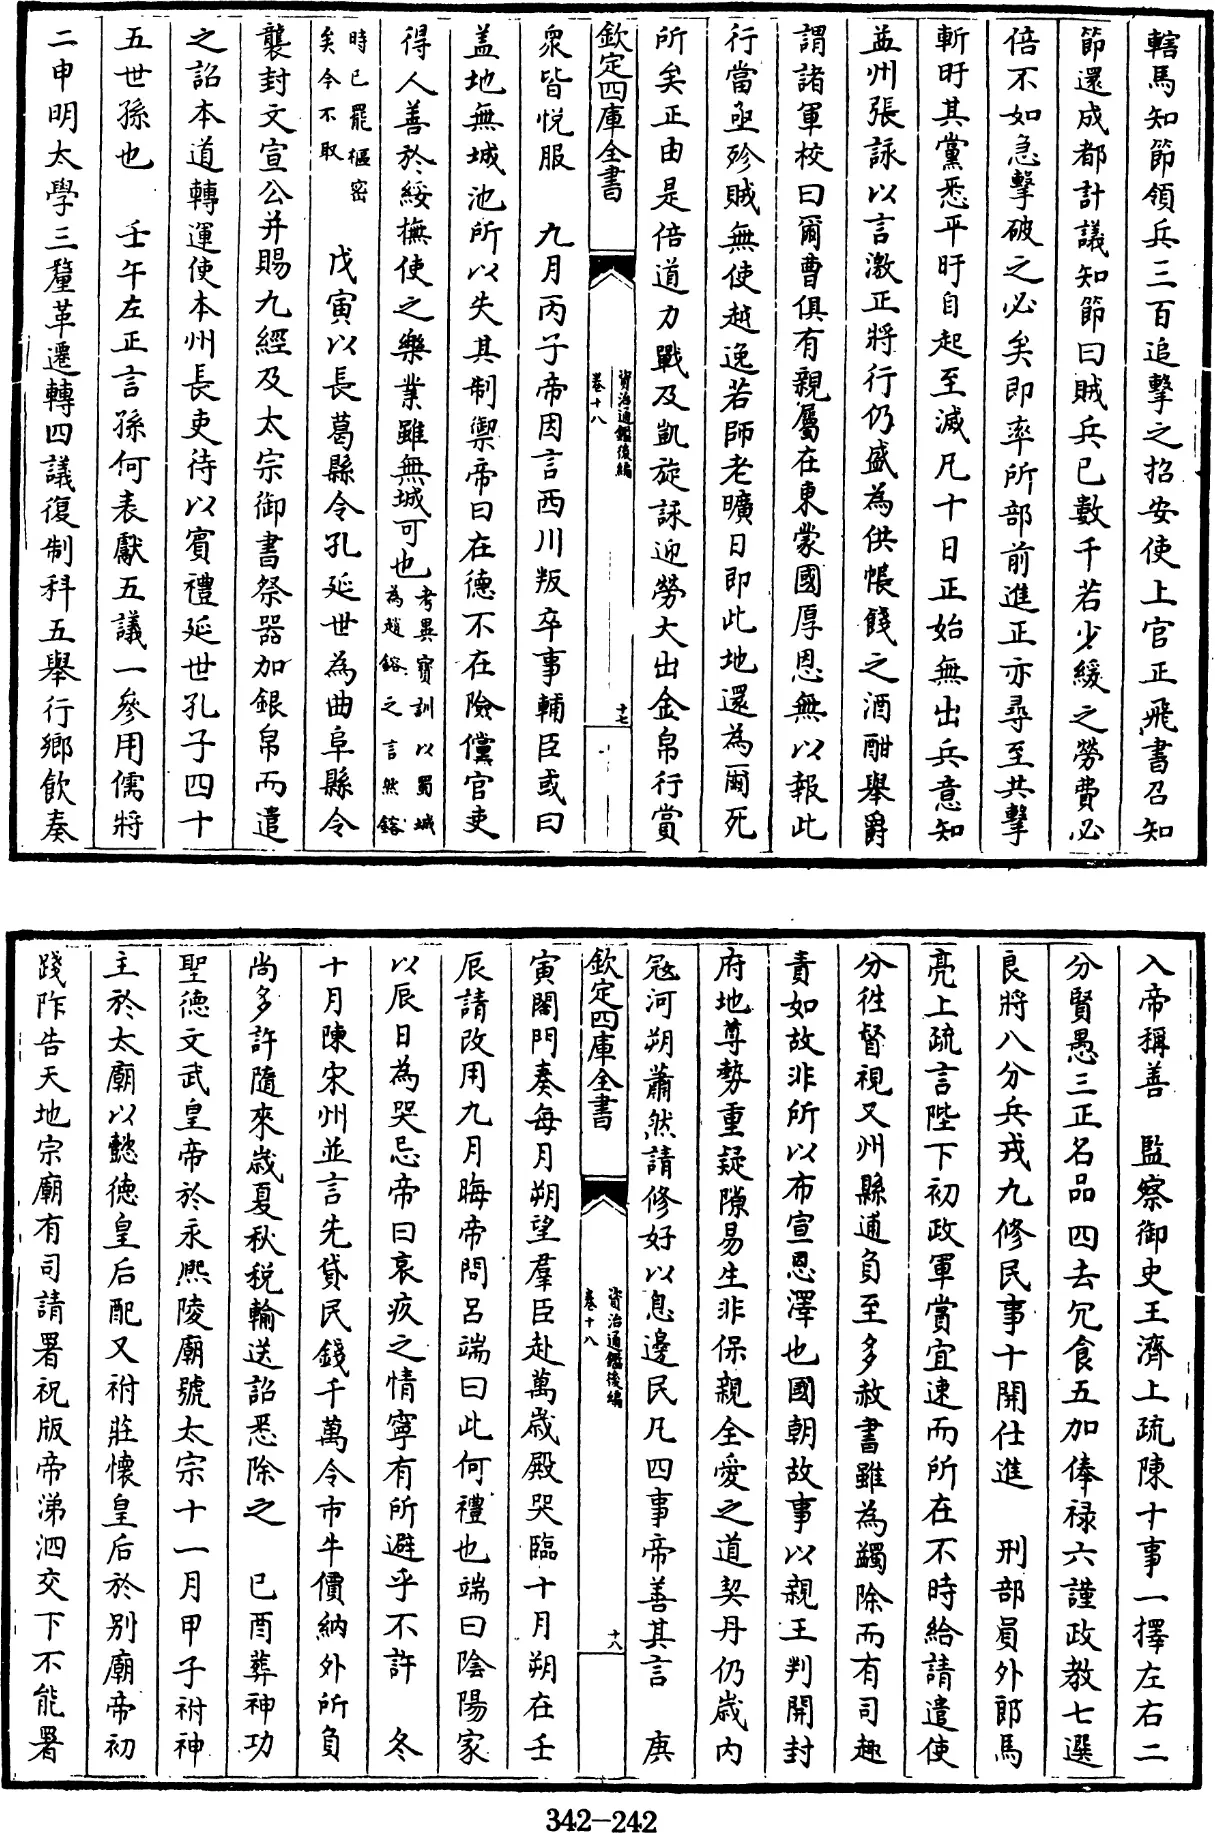 轄馬知節領兵三百追擊之招安使上官正飛書召知
節還成都計議知節曰賊兵已數千若少緩之勞費必
倍不如急擊破之必矣即率所部前進正亦尋至共擊
斬旴其黨悉平旴自起至滅凡十日正始無出兵意知
益州張詠以言激正將行仍盛為供帳餞之酒酣舉爵
謂諸軍校曰爾曹俱有親屬在東蒙國厚恩無以報此
行當亟殄賊無使越逸若師老曠日即此地還為爾死
所矣正由是倍道力戰及凱旋詠迎勞大出金帛行賞
欽定四庫全書
資治通鑑後編
卷十八
十七
衆皆悅服 九月丙子帝因言西川叛卒事輔臣或曰
盖地無城池所以失其制禦帝曰在德不在險儻官吏
得人善於綏撫使之樂業雖無城可也考異寶訓以蜀城
為趙鎔之言然鎔
時已罷樞密
矣今不取
戊寅以長葛縣令孔延世為曲阜縣令
襲封文宣公并賜九經及太宗御書祭器加銀帛而遣
之詔本道轉運使本州長吏待以賓禮延世孔子四十
五世孫也 壬午左正言孫何表獻五議一參用儒將
二申明太學三釐革遷轉四議復制科五舉行鄉飲奏
入帝稱善 監察御史王濟上疏陳十事一擇左右二
分賢愚三正名品四去冗食五加俸祿六謹政教七選
良將八分兵戎九修民事十開仕進 刑部員外郎馬
亮上疏言陛下初政軍賞宜速而所在不時給請遣使
分徃督視又州縣逋負至多赦書雖為蠲除而有司趣
責如故非所以布宣恩澤也國朝故事以親王判開封
府地尊勢重疑隙易生非保親全愛之道契丹仍歳内
冦河朔蕭然請修好以息邊民凡四事帝善其言 庚
欽定四庫全書
資治通鑑後編
卷十八
十八
寅閤門奏每月朔望羣臣赴萬歳殿哭臨十月朔在壬
辰請改用九月晦帝問呂端曰此何禮也端曰陰陽家
以辰日為哭忌帝曰哀疚之情寧有所避乎不許 冬
十月陳宋州並言先貸民錢千萬令市牛價納外所負
尚多許隨來歳夏秋税輸送詔悉除之 已酉葬神功
聖德文武皇帝於永熙陵廟號太宗十一月甲子祔神
主於太廟以懿德皇后配又祔莊懷皇后於别廟帝初
踐阼告天地宗廟有司請署祝版帝涕泗交下不能署
342-242